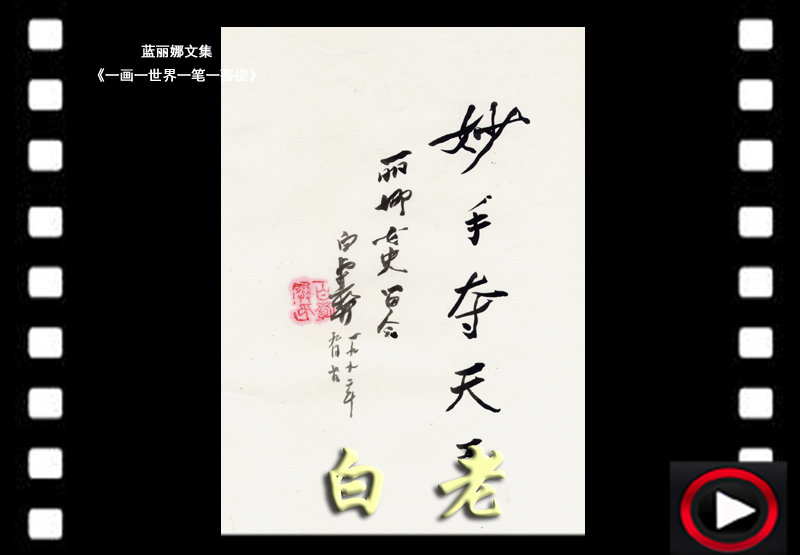 蓝丽娜文集
《一画一世界一笔一菩提》
妙手夺天
丽娜女史留念
白
一九九二年
白老